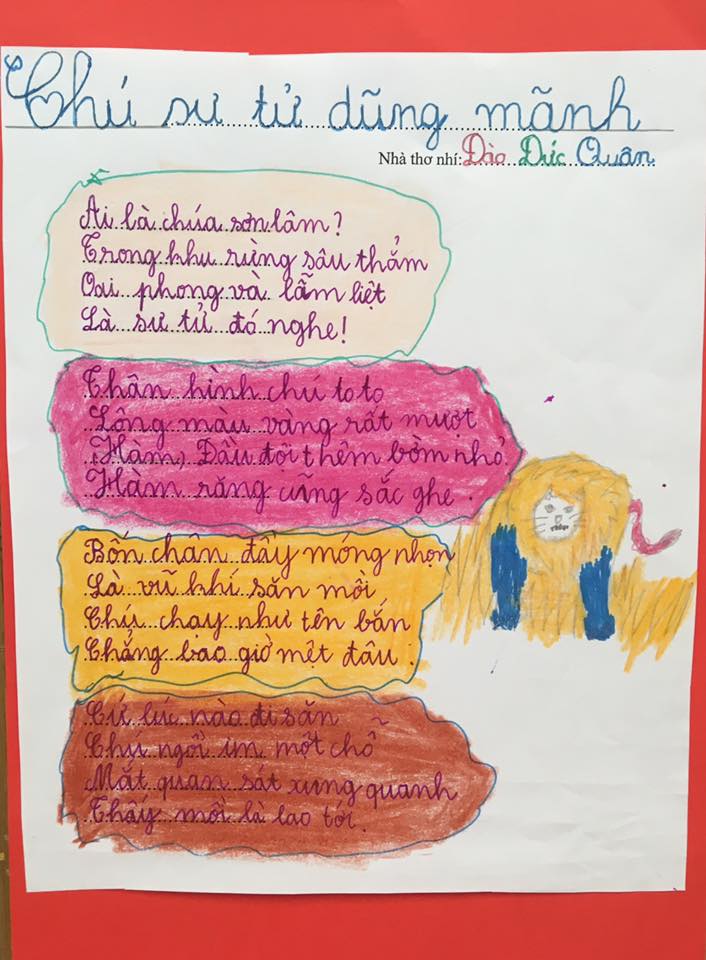 Chú sư tử dũng mãnh
Nhà thơ nhí: Đào Đức Quân
Ai là chúa sơn lâm?
Trong khu rừng sâu thẳm
Oai phong và lẫm liệt
Là sư tử đó nghe!
Thân hình chú to to
Lông màu vàng rất mượt
(Hàm) Đầu đội thêm bờm nhỏ
Hàm răng cũng sắc ghe.
Bốn chân đầy móng nhọn
Là vũ khí săn mồi
Chú chạy như tên bắn
Chẳng bao giờ mệt đâu.
Cứ lúc nào đi săn
Chú ngồi im một chỗ
Mắt quan sát xung quanh
Thấy mồi là lao tới.